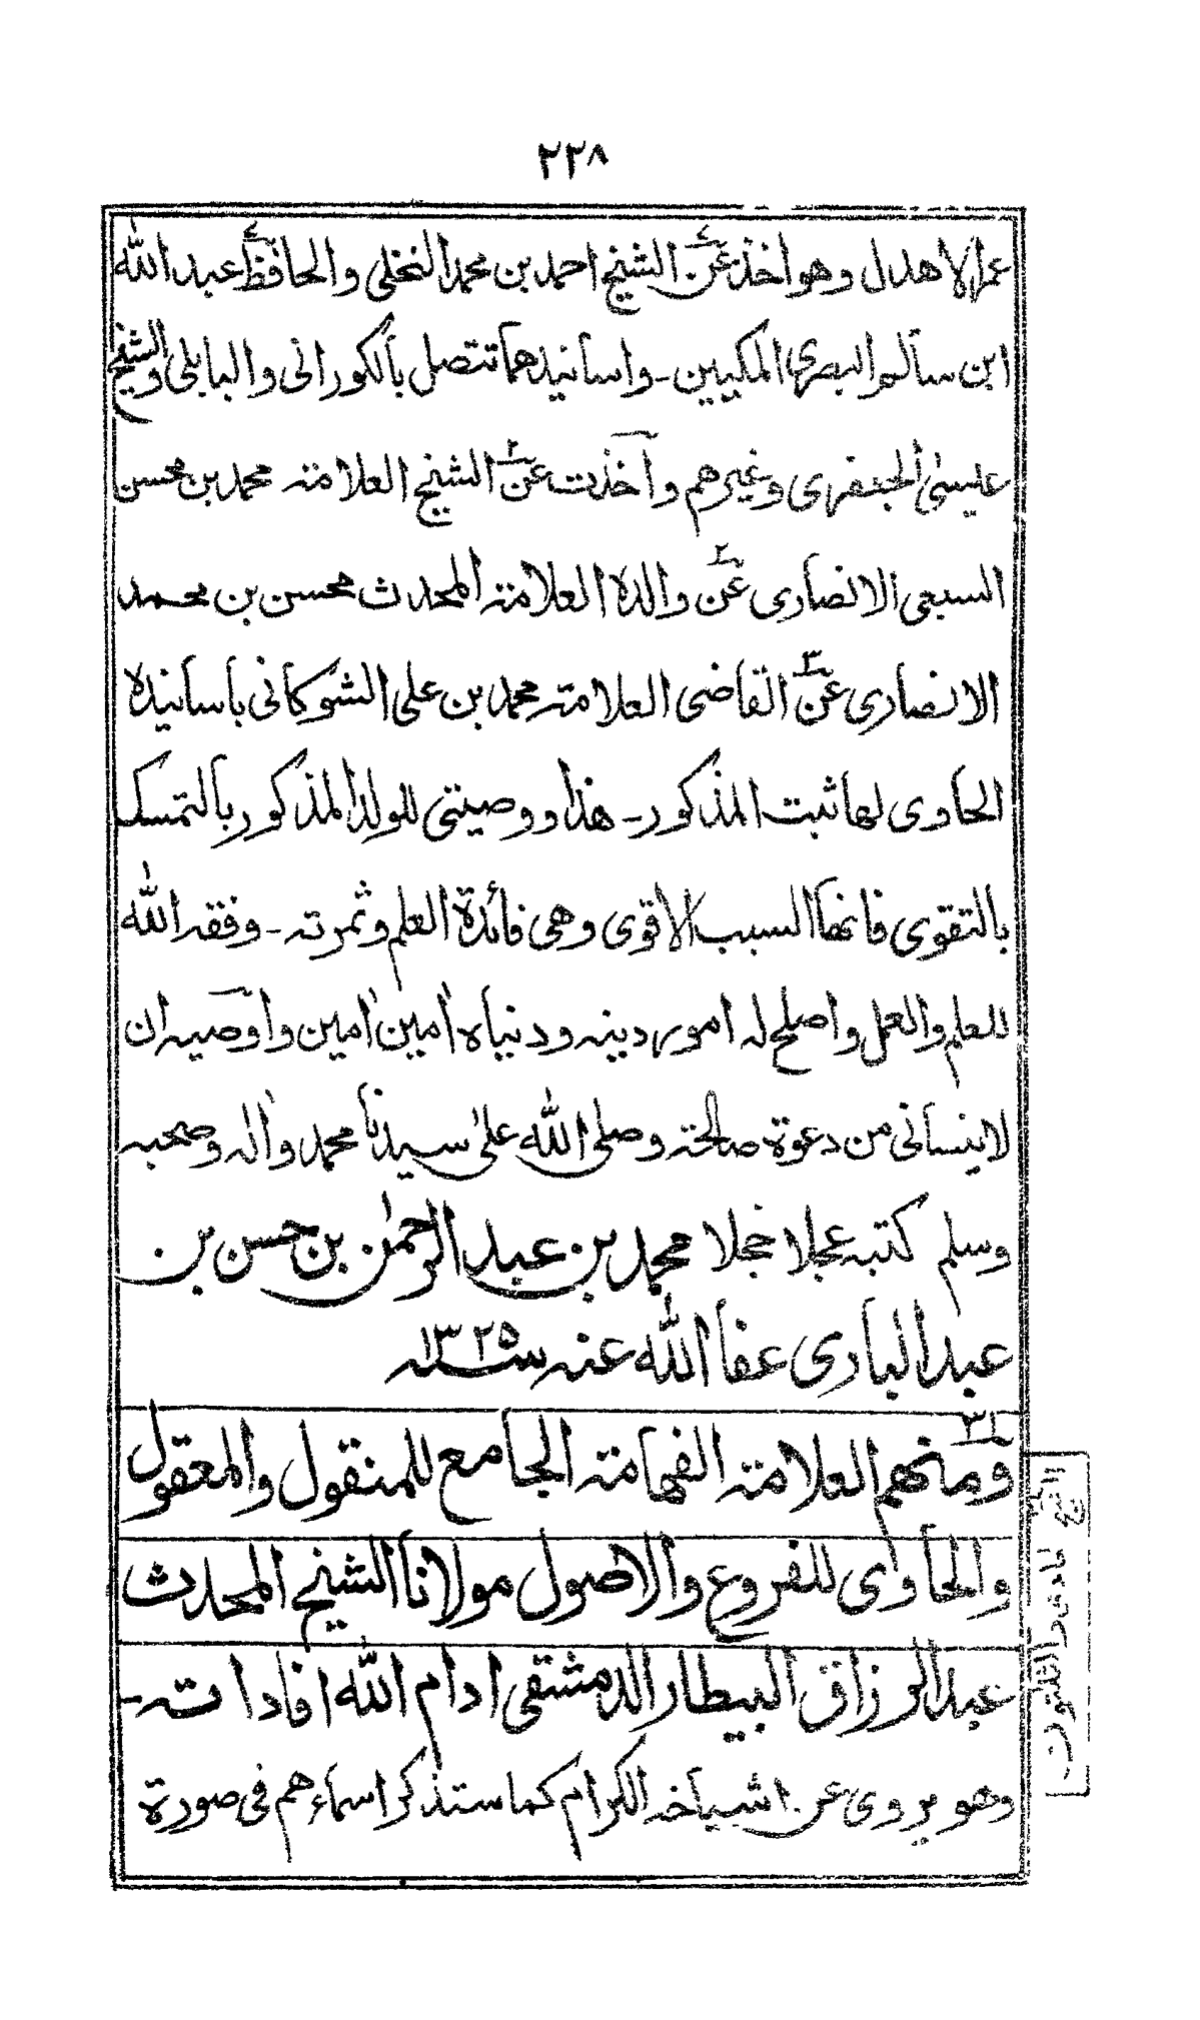 ٢٢٨
عمر الاهدل وهو اخذ عن الشيخ احمد بن محمد النخلي والحافظ عبد الله
ابن سالم البصرى المكيين - واسانيدهما تتصل بالكورانى والبابلى والشيخ
عليسى الجعفرى وغيرهم واخذت عن الشيخ العلامة محمد بن محسن
السبعى الانصارى عن والده العلامة المحدث محسن بن محمد
الانصارى عن القاضى العلامة محمد بن على الشوكانى باسانيده
الحاوى لها ثبت المذكور - هذا ووصيتى للولد المذكور بالتمسك
بالتقوى فانها السبب الاقوى وهى فائدة العلم وثمرته - وفقه الله
للعلم والعمل واصلح له امور دينه ودنياه اٰمين اٰمين واوصيه ان
لا ينسانى من دعوة صالحة وصلى الله علىٰ سيدنا محمد واٰله وصحبه
وسلم كتبه عجلا خجلا محمد بن عبد الرحمٰن بن حسن بن
عبد البارى عفا الله عنه سنة ١٣٢٥
٣١
ومنهم العلامة الفهامة الجامع للمنقول والمعقول
والحاوى للفروع والاصول مولانا الشيخ المحدث
عبد الرزاق البيطار الدمشقى ادام الله افاداته -
وهو يروى عن اشياخه الكرام كما ستذكر اسماءهم فى صورة
الشيخ الحادى والثلثون